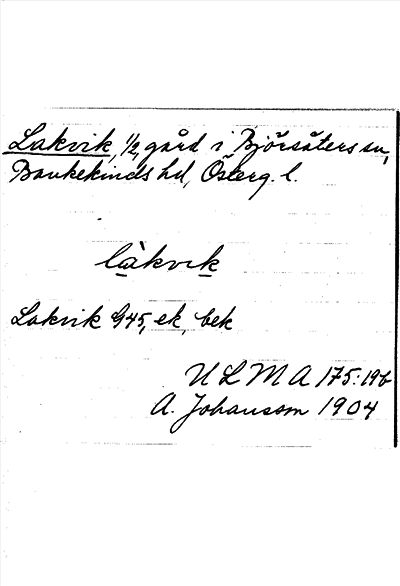 Lakvik, 1/2, gård i Björsäters sn,
Bankekinds hd, Österg. l.
làkvik
Lakvik G45, ek, bek
U L M A 175:196
A. Johansson 1904